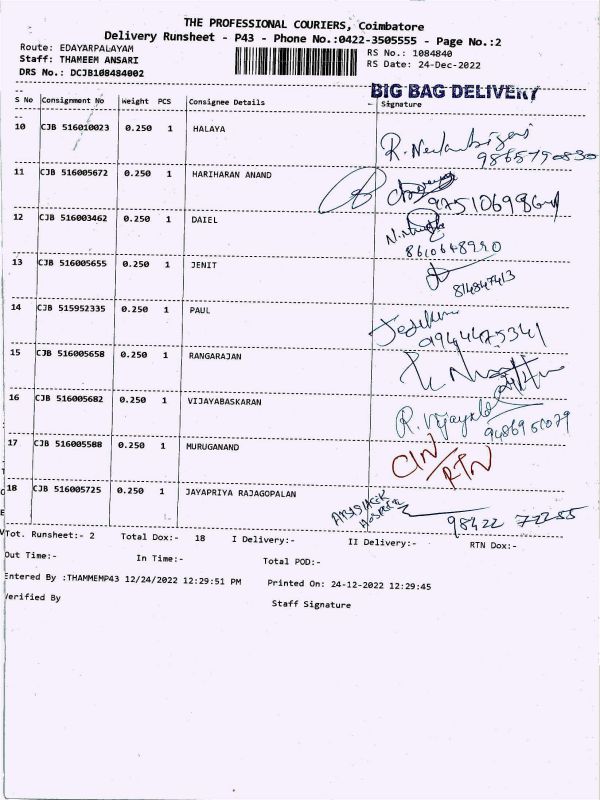 THE PROFESSIONAL COURIERS, Coimbatore
Delivery Runsheet - P43 - Phone No.:0422-3505555 - Page No.:2
Route: EDAYARPALAYAM RS No.: 1084840
Staff: THAMEEM ANSARI RS Date: 24-Dec-2022
DRS No.: DCJB108484002
BIG BAG DELIVERY
S No Consignment No Weight PCS Consignee Details Signature
10 CJB 516010023 0.250 1 HALAYA
9865790830
11 CJB 516005672 0.250 1 HARIHARAN ANAND
12 CJB 516003462 0.250 1 DAIEL
8610648990
13 CJB 516005655 0.250 1 JENIT
14 CJB 515952335 0.250 1 PAUL
15 CJB 516005658 0.250 1 RANGARAJAN
16 CJB 516005682 0.250 1 VIJAYABASKARAN
R. Vijayala
17 CJB 516005588 0.250 1 MURUGANAND CIN/RTN
18 CJB 516005725 0.250 1 JAYAPRIYA RAJAGOPALAN
98422 72255
Tot. Runsheet:- 2 Total Dox:- 18 I Delivery:- II Delivery:- RTN Dox:-
Out Time:- In Time:- Total POD:-
Entered By :THAMMEMP43 12/24/2022 12:29:51 PM Printed On: 24-12-2022 12:29:45
Verified By Staff Signature